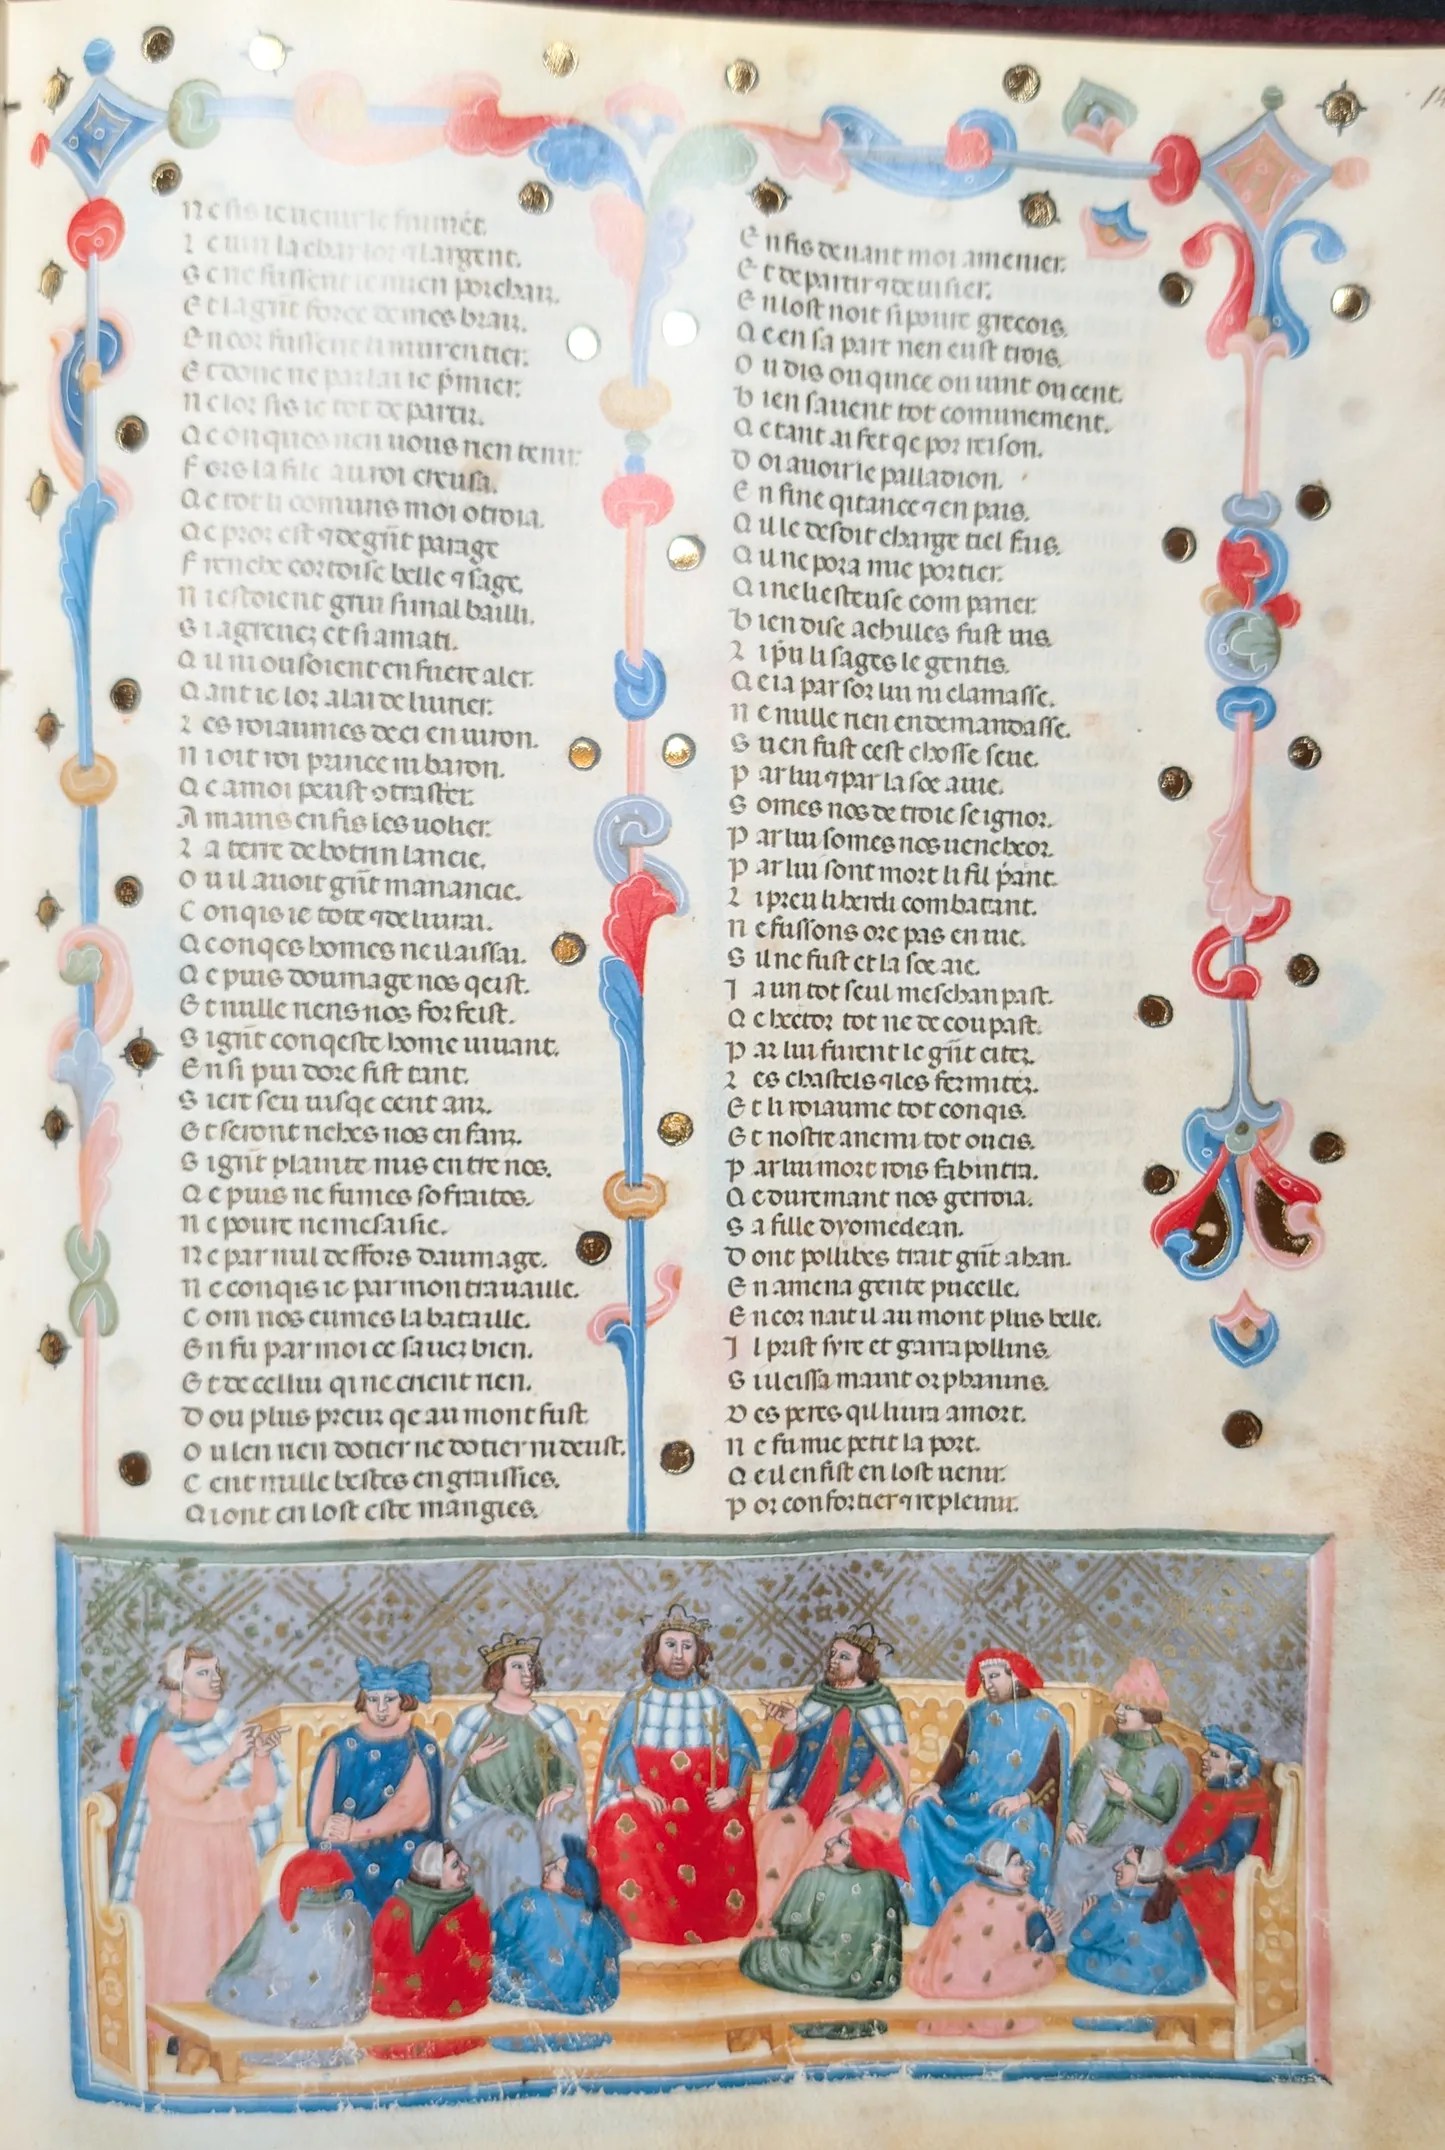 N e fis ie uenir le frumēt.
L e uin la char lor ⁊ largent.
S e ne fussent le mien porchaz.
E t la gn̄t force de mes braz.
E ncor fussent li mur entier.
E t donc ne parlai ie p̄mier.
N e lor fis ie tot de partir.
Q e onques nen uous rien tenir.
F ors la file au roi creusa.
Q e tot li comuns moi otroia.
Q e proz est ⁊ de gn̄t parage
F renche cortoise belle ⁊ sage.
N i estoient griu si mal bailli.
S i agreuez et si amati.
Q il ni ousoient en fuere aler.
Q ant ie lor alai de liurer.
L es roiaumes de ci en uiron.
N i oit roi prince ni baron.
Q e a moi peust 9traster.
A mains en fis les uolier.
L a terre de botrin lancie.
O u il auoit gn̄t manancie.
C onqis ie tote ⁊ de liurai.
Q e onqes homes ne i laissai.
Q e puis doumage nos qeist.
E t nulle riens nos for feist.
S i gn̄t conqeste home uiuant.
E n si pui dore fist tant.
S i ert seu iusqe cent anz.
E t seront riches nos enfanz.
S i gn̄t plainte mis entre nos.
Q e puis ne fumes sofraitos.
N e poure ne mesaisie.
N e par nul deffors daumage.
N e conqis ie par mon trauaille.
C om nos eumes la bataille.
E n fu par moi ce sauez bien.
E t de celliu qi ne crient rien.
D ou plus preuz qe au mont fust
O u len nen dotier ne dotier ni deust.
C ent mille bestes engraissies.
Q i ont en lost este mangies.
E n fis deuant moi amenier.
E t de partir ⁊ de uisier.
E n lost noit si poure grecois.
Q e en sa part nen eust trois.
O u dis ou qince ou uint ou cent.
B ien sauent tot comunement.
Q e tant ai fet qe por reison.
D oi auoir le palladion.
E n fine qitance ⁊ en pais.
Q ulle desoit charge tiel fais.
Q u ne pora mie portier.
Q i ne li esteuse comparier.
B ien dise achilles fust uis.
L i p̄u li sages le gentis.
Q e ia par sor lui ni clamasse.
N e nulle rien en demandasse.
S uen fust cest chosse seue.
P ar lui ⁊ par la soe aiue.
S omes nos de troie seignor.
P ar lui somes nos uencheor.
P ar lui sont mort li fil p̄ant.
L i preu li herdi combatant.
N e fussons ore pas en uie.
S il ne fust et la soe aie.
I a un tot seul meschan past.
Q e hector tot ne de coupast.
P ar lui furent le gn̄t citez.
L es chastels ⁊ les fermitez.
E t li roiaume tot conqis.
E t nostre anemi tot oucis.
P ar lui mort rois fabintra.
Q e duremant nos gerroia.
S a fille dyomedean.
D ont pollibes trait gn̄t ahan.
E n amena gente pucelle.
E ncor nait il au mont plus belle.
I l prist syre et garrapollins.
S i i leissa maint orphanins.
D es peres qil liura a mort.
N e fu mie petit la port.
Q e il en fist en lost uenir.
P or confortier ⁊ replenir.